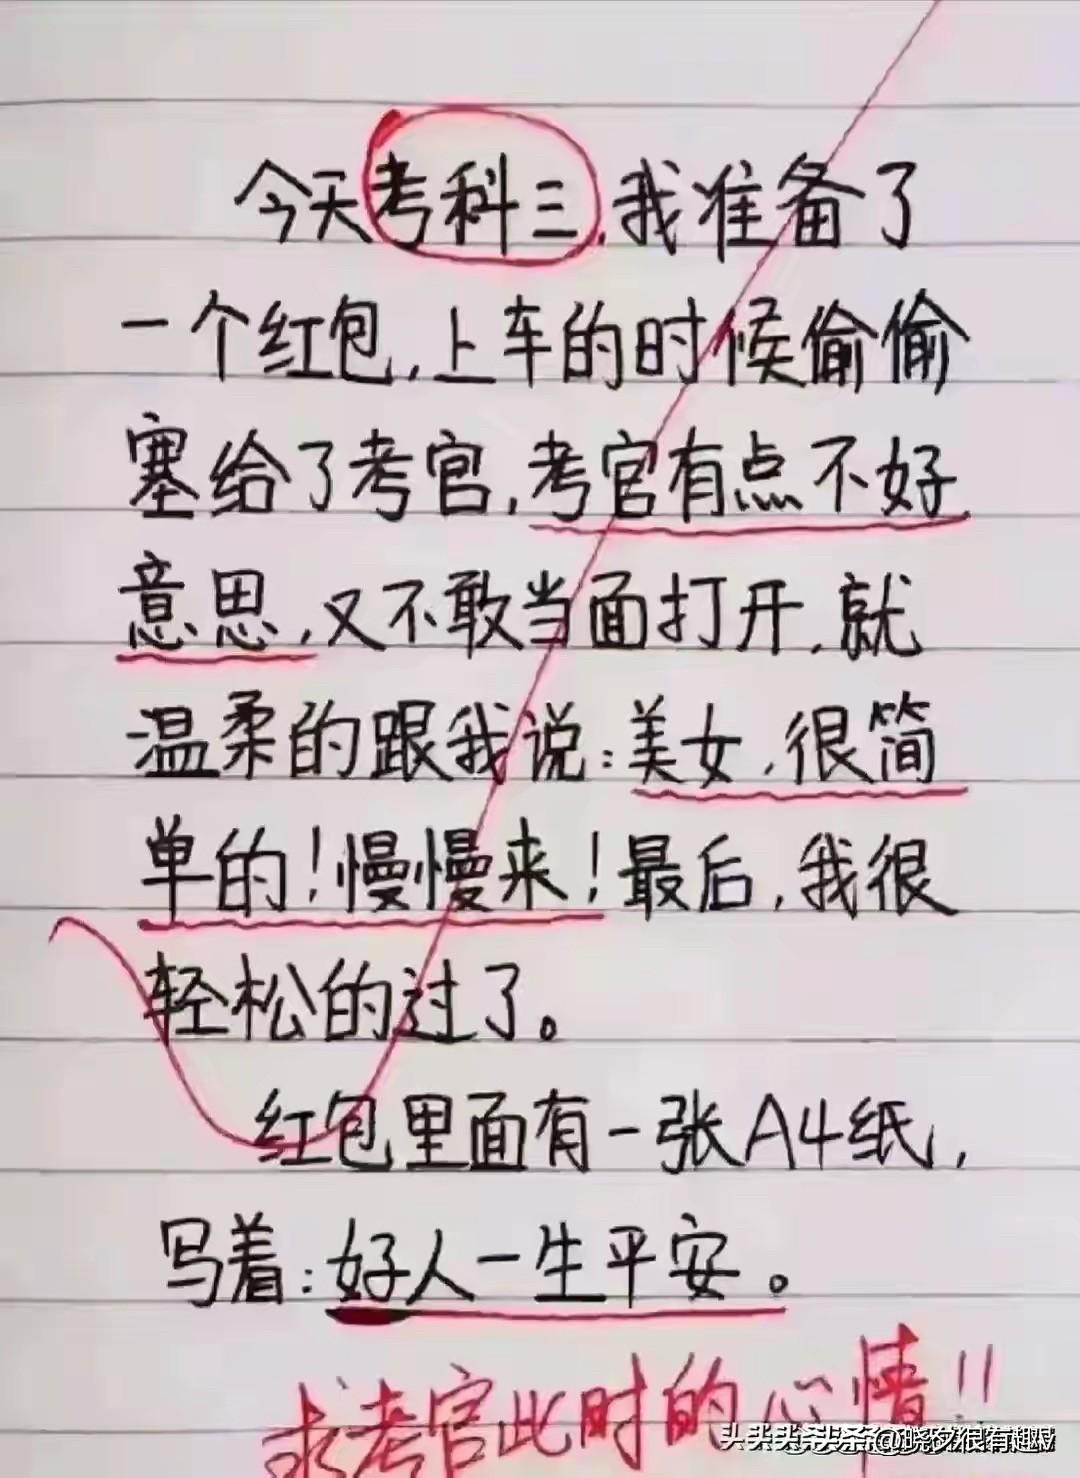 今天考科三,我准备了
一个红包,上车的时候偷偷
塞给了考官,考官有点不好
意思,又不敢当面打开,就
温柔的跟我说:美女,很简
单的!慢慢来!最后,我很
轻松的过了。
红包里面有一张A4纸,
写着:好人一生平安。
求考官此时的心情!!
头条@晓艾很有趣